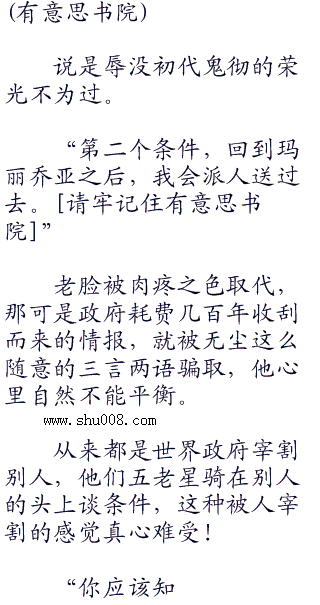 (有意思书院)
说是辱没初代鬼彻的荣
光不为过。
“第二个条件，回到玛
丽乔亚之后，我会派人送过
去。[请牢记住有意思书
院]”
老脸被肉疼之色取代，
那可是政府耗费几百年收刮
而来的情报，就被无尘这么
随意的三言两语骗取，他心
里自然不能平衡。
www.shu008.com
从来都是世界政府宰割
别人，他们五老星骑在别人
的头上谈条件，这种被人宰
割的感觉真心难受！
“你应该知